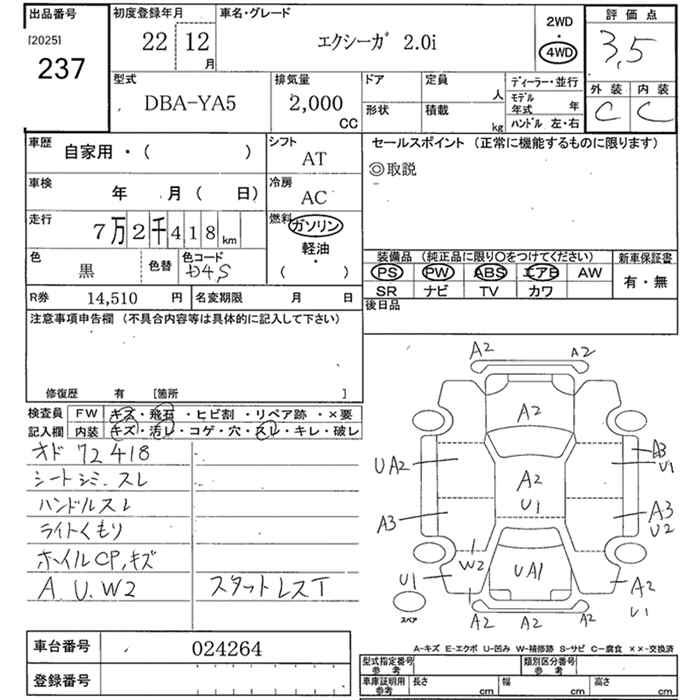 出品番号 初度登録年月 車名・グレード 2WD 評価点
[2025] 22 12 月 エクシーガ 2.0i 4WD 3,5
237
型式 排気量 ドア 定員 人 ディーラー・並行 外装 内装
DBA-YA5 2,000 CC 形状 積載 kg モデル年式 年 C C
ハンドル 左・右
車歴 自家用・( ) シフト AT セールスポイント (正常に機能するものに限ります)
◎取説
車検 年 月( 日) 冷房 AC
走行 7万2千418km 燃料 ガソリン
軽油
・
( )
色 黒 色替 色コード D4S 装備品 (純正品に限り○をつけてください) 新車保証書
PS PW ABS エアB AW 有・無
SR ナビ TV カワ
R券 14,510 円 名変期限 月 日 後日品
注意事項申告欄 (不具合内容等は具体的に記入して下さい)
修復歴 有 [箇所 ]
検査員 FW キズ・飛石・ヒビ割・リペア跡・×要
記入欄 内装 キズ・汚レ・コゲ・穴・スレ・キレ・破レ
オド 72418
シートシミ.スレ
ハンドルスレ
ライトくもり
ホイルCP,キズ
A.U.W2 スタットレスT
A2 A2
A2
UA2 A3
U1
A2
U1
A3 A3
U2
W2
U1 UA1 A2
U1
スペア A2 A2 A2
A-キズ E-エクボ U-凹み W-補修跡 S-サビ C-腐食 ××-交換済
車台番号 024264
登録番号
型式指定番号 参考 類別区分番号 参考
車庫証明用 参考 長さ cm 幅 cm 高さ cm